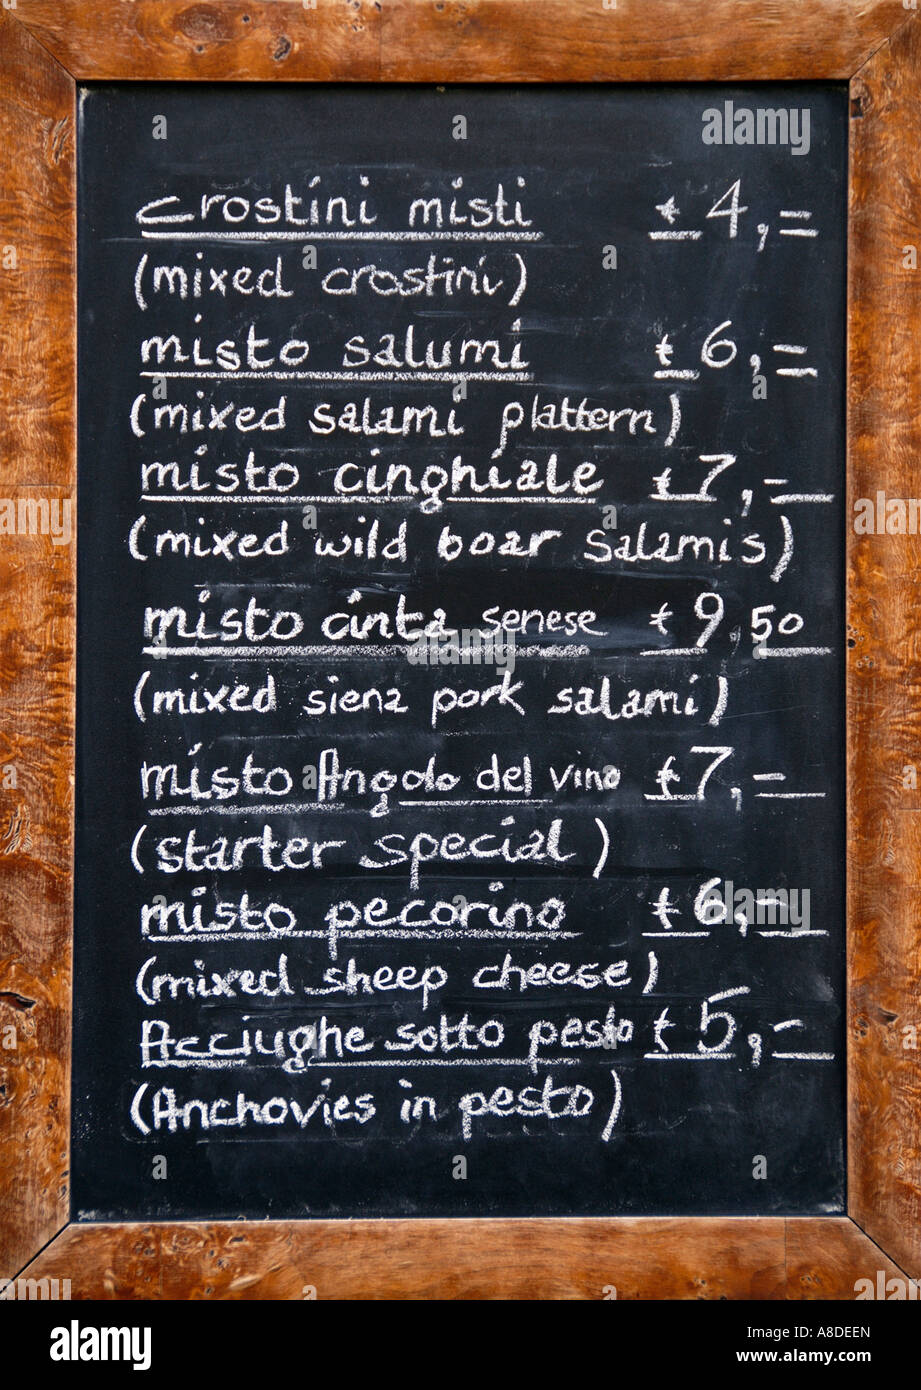 crostini misti € 4,=
(mixed crostini)
misto salumi € 6,=
(mixed salami plattern)
misto cinghiale € 7,-
(mixed wild boar salamis)
misto cinta senese € 9,50
(mixed siena pork salami)
misto Angolo del vino € 7,-
(starter special)
misto pecorino € 6,-
(mixed sheep cheese)
Acciughe sotto pesto € 5,-
(Anchovies in pesto)
alamy
a
alamy
www.alamy.com
Image ID: A8DEEN